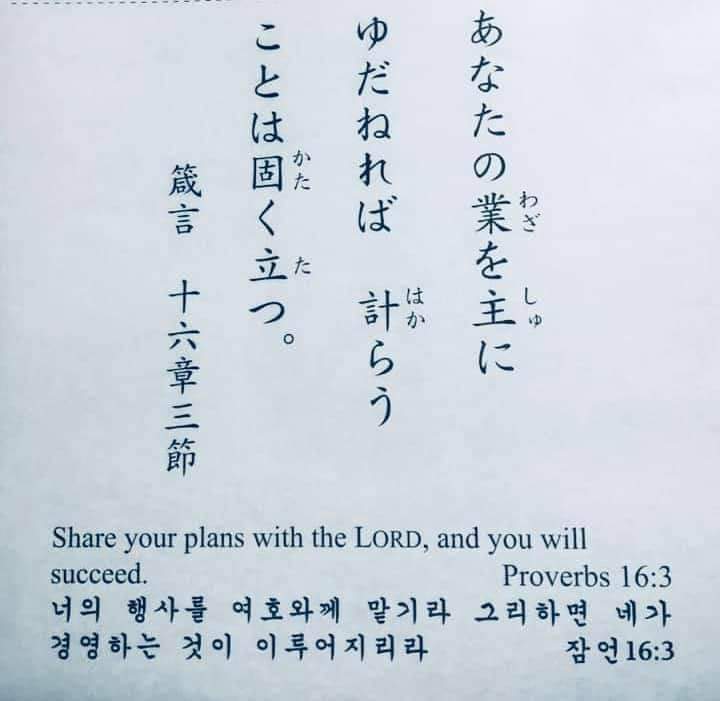 あなたの業を主に
わざ
しゅ
ゆだねれば 計らう
はか
ことは固く立つ。
かた
た
箴言 十六章三節
Share your plans with the LORD, and you will
succeed. Proverbs 16:3
너의 행사를 여호와께 맡기라 그리하면 네가
경영하는 것이 이루어지리라 잠언16:3